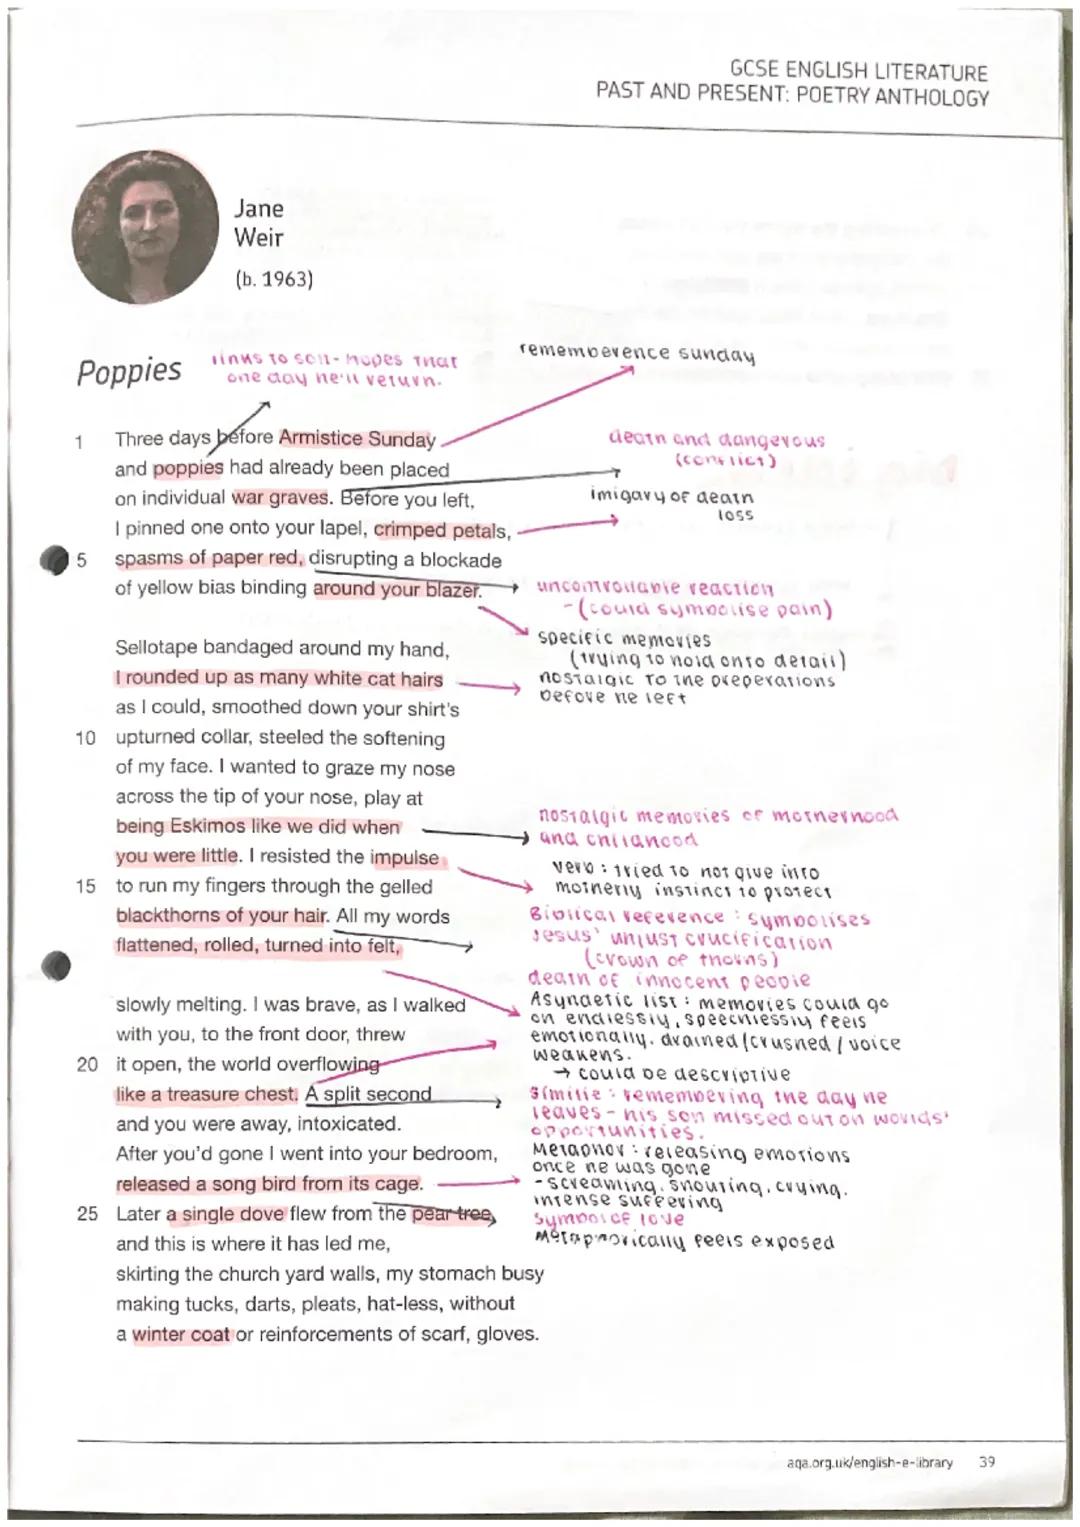 GCSE ENGLISH LITERATURE
PAST AND PRESENT: POETRY ANTHOLOGY
Jane
Weir
(b. 1963)
Poppies
links to son - hopes that
one day he'll return.
rememberence sunday
1 Three days before Armistice Sunday
and poppies had already been placed
on individual war graves. Before you left,
I pinned one onto your lapel, crimped petals,
5 spasms of paper red, disrupting a blockade
of yellow bias binding around your blazer.
death and dangerous
(conflict)
imigary of death
loss
uncontrollable reaction
-(could symbolise pain)
specific memories
(trying to hold onto detail)
nostalgic to the preperations
before he left
Sellotape bandaged around my hand,
I rounded up as many white cat hairs
as I could, smoothed down your shirt's
10 upturned collar, steeled the softening
of my face. I wanted to graze my nose
across the tip of your nose, play at
being Eskimos like we did when
you were little. I resisted the impulse
15 to run my fingers through the gelled
blackthorns of your hair. All my words
flattened, rolled, turned into felt,
nostalgic memories of motherhood
and childhood
verb : tried to not give into
motherly instinct to protect
Biblical reference : symbolises
Jesus' unjust crucification
(crown of thorns)
death of innocent people
Asyndetic list : memories could go
on endlessly, speechlessly feels
emotionally. drained/crushed / voice
weakens.
→ could be descriptive
slowly melting. I was brave, as I walked
with you, to the front door, threw
20 it open, the world overflowing
like a treasure chest. A split second
and you were away, intoxicated.
After you'd gone I went into your bedroom,
released a song bird from its cage.
25 Later a single dove flew from the pear tree,
and this is where it has led me,
skirting the church yard walls, my stomach busy
making tucks, darts, pleats, hat-less, without
a winter coat or reinforcements of scarf, gloves.
Similie : remembering the day he
leaves - his son missed out on worlds'
opportunities.
Metaphor : releasing emotions
once he was gone
- screaming, shouting, crying,
intense suffering
symbol of love
Metaphorically feels exposed
aqa.org.uk/english-e-library 39